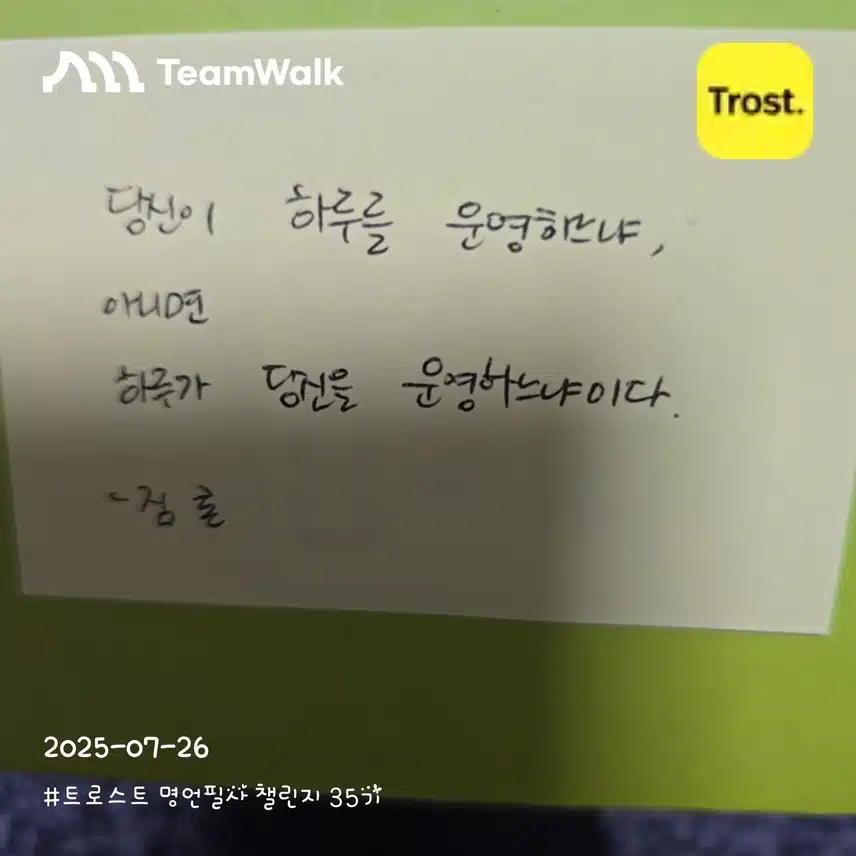 TeamWalk
Trost.
당신이 하루를 운영하느냐,
아니면
하루가 당신을 운영하느냐이다.
- 짐 론
2025-07-26
#트로스트 명언필사 챌린지 35기